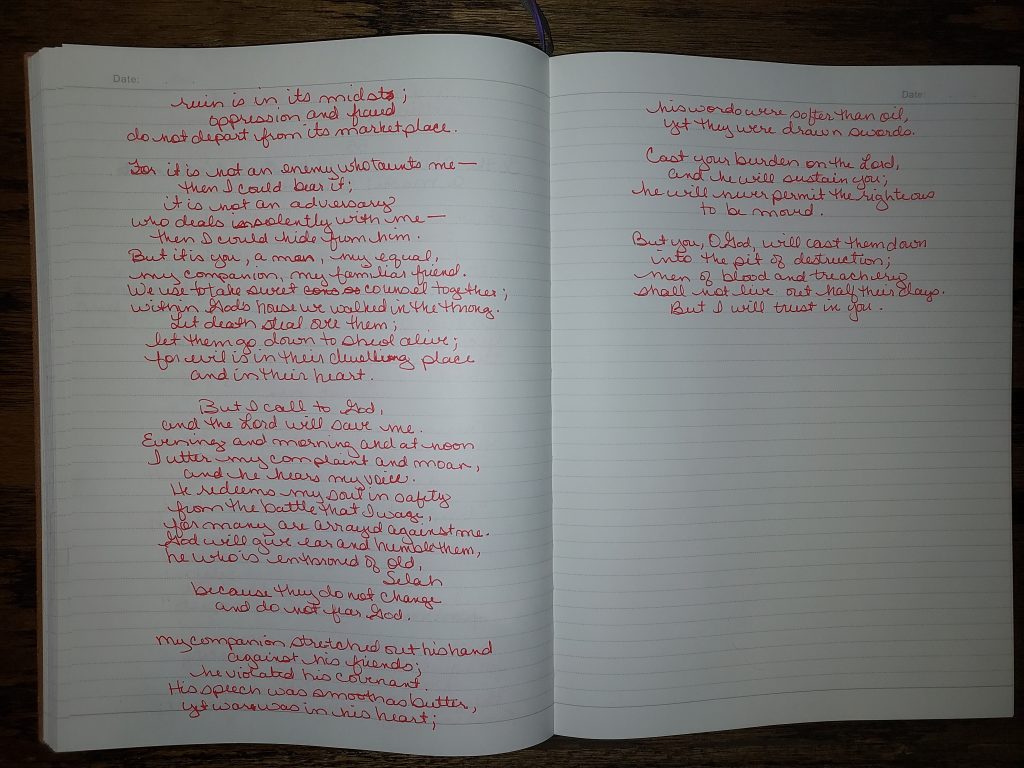 Date:
ruin is in its midst;
oppression and fraud
do not depart from its marketplace.
For it is not an enemy who taunts me—
then I could bear it;
it is not an adversary
who deals insolently with me—
then I could hide from him.
But it is you, a man, my equal,
my companion, my familiar friend.
We use to take sweet counsel together;
within God's house we walked in the throng.
Let death steal over them;
let them go down to Sheol alive;
for evil is in their dwelling place
and in their heart.
But I call to God,
and the Lord will save me.
Evening and morning and at noon
I utter my complaint and moan,
and he hears my voice.
He redeems my soul in safety
from the battle that I wage,
for many are arrayed against me.
God will give ear and humble them,
he who is enthroned of old,
Selah
because they do not change
and do not fear God.
My companion stretched out his hand
against his friends;
he violated his covenant.
His speech was smooth as butter,
yet war was in his heart;
Date:
his words were softer than oil,
yet they were drawn swords.
Cast your burden on the Lord,
and he will sustain you;
he will never permit the righteous
to be moved.
But you, O God, will cast them down
into the pit of destruction;
men of blood and treachery
shall not live out half their days.
But I will trust in you.